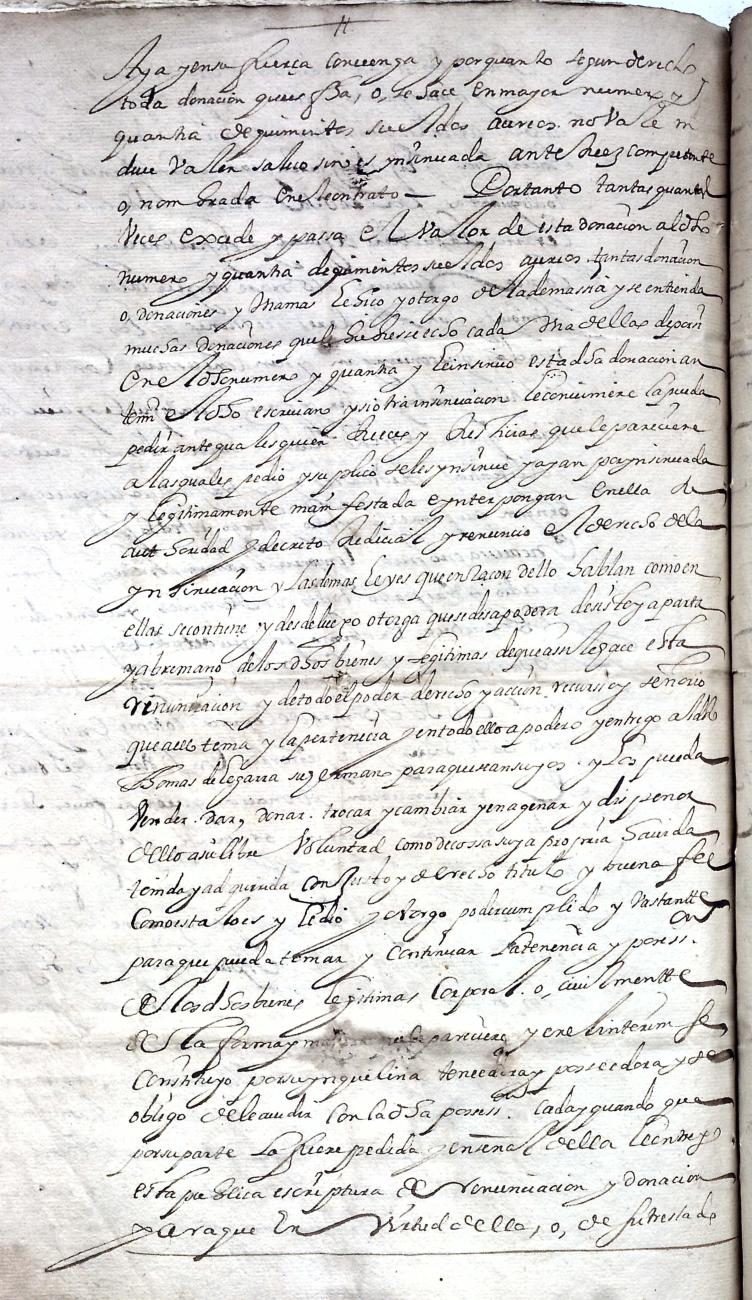 Aya y en su fuerça convenga y por quanto segun derecho
toda donacion que es fha, o, se hace en mayor numero y
quantia de quinientos sueldos aureos no vale ni
deve valer salvo si no es ynsinuada ante Juez competente
o, nombrada en el contrato — Portanto tantas quantas
veces excede y passa el valor de esta donacion al dho
numero y quantia de quinientos sueldos aureos tantas donacion
o, donaciones y Mamas le hiço y otorgo de la demassia y se entienda
muchas donaciones que le hubiesse echo cada una de ellas de por si
en el dho numero y quantia y le insinuo esta dha donacion an
temi el dho escrivano y si otra insinuacion le conviniere la pueda
pedir ante qualesquier Jueces y Justicias que le pareciere
a las quales pedio y suplico se les ynsinue y ayan por ynsinuada
y legitimamente manifestada e ynterpongan en ella su
authoridad y decreto Judicial y renuncio el derecho de la
ynsinuacion y las demas leyes que en raçon dello hablan como en
ellas se contiene y desde luego otorga que se desapodera desiste y aparta
y abre mano de los dhos bienes y legitimas de que assi le hace esta
renunciacion y de todo el poder derecho y accion recurso y señorio
que a ello tenia y la pertenecia y en todo ello apodero y entrego al dho
Thomas de legarra su hermano para que sean suyos . y los pueda
vender . dar, donar . trocar y cambiar y enagenar y disponer
de ello a su libre voluntad como de cossa suya propria havida
tenida y adquirida con Justo y derecho titulo y buena fee
como esta lo es y le dio y otorgo poder cumplido y vastantte
para que pueda tomar y continuar la tenencia y poress.on
de los dhos bienes legitimas corporal . o, civilmentte
de la forma y manera que le pareciere y en el interim se
constituyo por su ynquelina tenedora y posseedora y se
obligo de le acudir con la dha posess.on cada y quando que
por su parte la fuere pedida y en señal de ella le entrego
esta publica escriptura de renunciacion y donacion
para que en virtud de ella, o, de su trestado